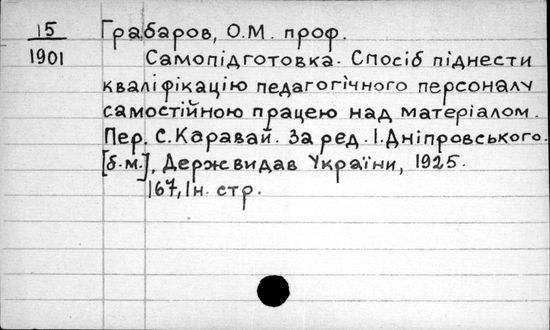 15 Грабаров, О.М. проф.
1901 Самопідготовка. Спосіб піднести
кваліфікацію педагогічного персоналу
самостійною працею над матеріалом.
Пер. С. Каравай. За ред. І. Дніпровського.
[б.м.], Держвидав України, 1925.
167, Ін. стр.